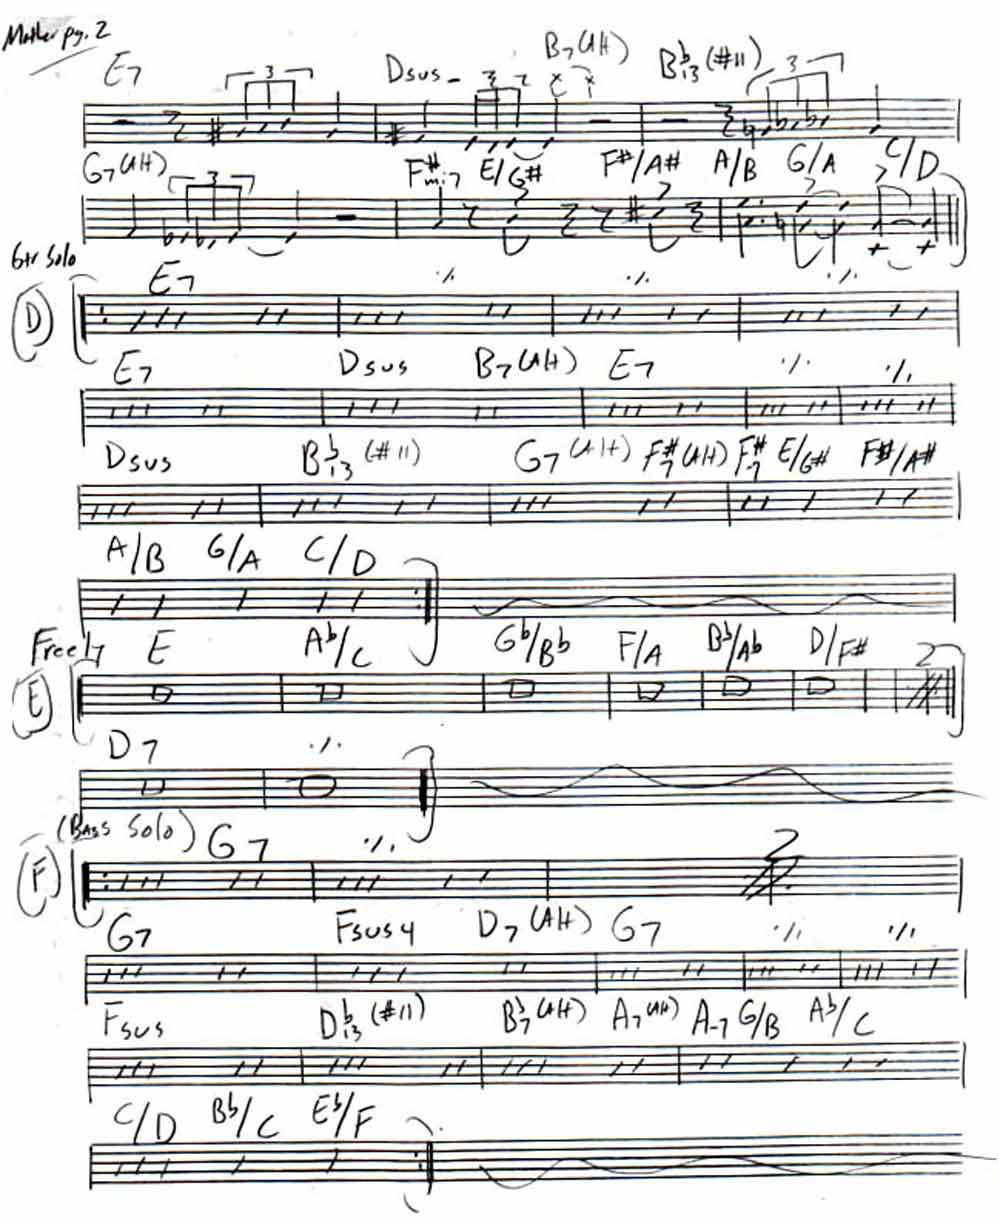 Mother pg. 2
E7 3 Dsus 3 B7(Alt) Bb13(#11) 3
G7(Alt) 3 F#mi7 E/G# F#/A# A/B G/A C/D
Gtr Solo
D E7 ٪ ٪ ٪
E7 Dsus B7(Alt) E7 ٪ ٪
Dsus Bb13(#11) G7(Alt) F#7(Alt) F#-7 E/G# F#/A#
A/B G/A C/D
Freely E Ab/C Gb/Bb F/A Bb/Ab D/F# 2
E
D7 ٪
(Bass Solo) G7 ٪ 2
F
G7 Fsus4 D7(Alt) G7 ٪ ٪
Fsus Db13(#11) Bb7(Alt) A7(Alt) A-7 G/B Ab/C
C/D Bb/C Eb/F